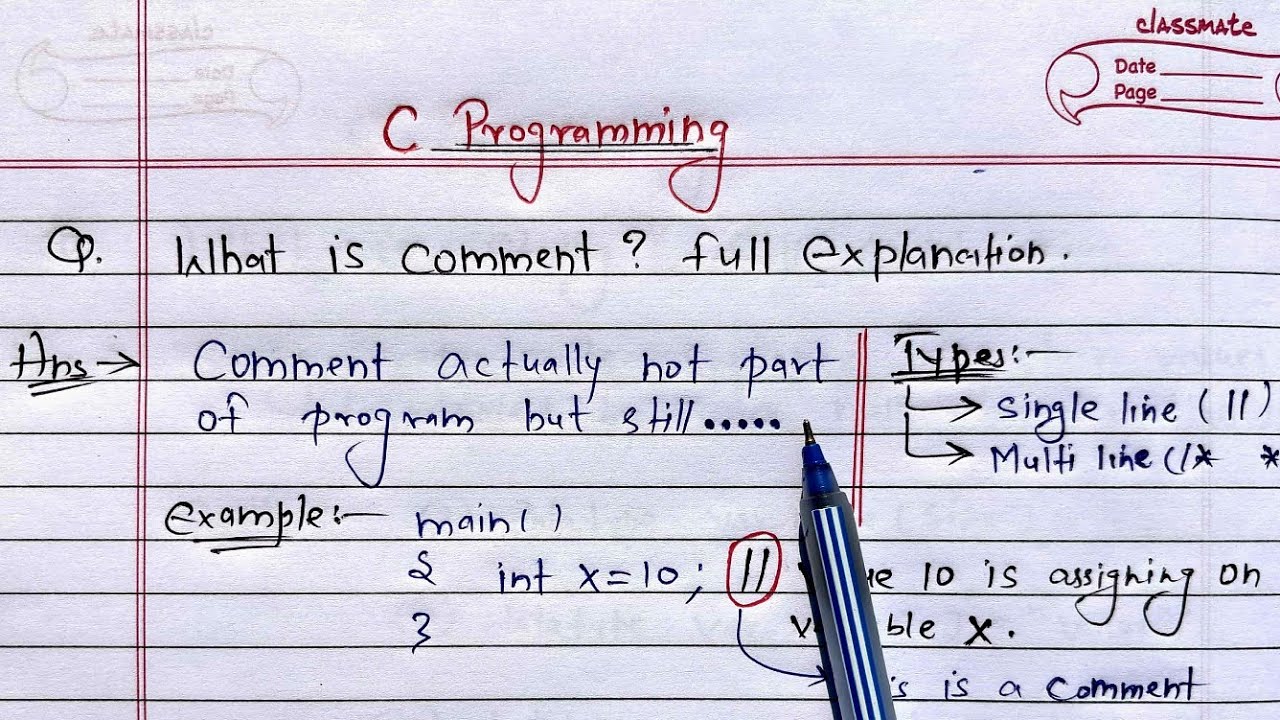 classmate
Date
Page
C Programming
Q. What is comment? full explanation.
Ans → Comment actually not part
of program but still.....
Types:-
→ Single line (//)
→ Multi line (/* *
example:- main()
{ int x=10; // 10 is assigning on
x.
is a comment
}